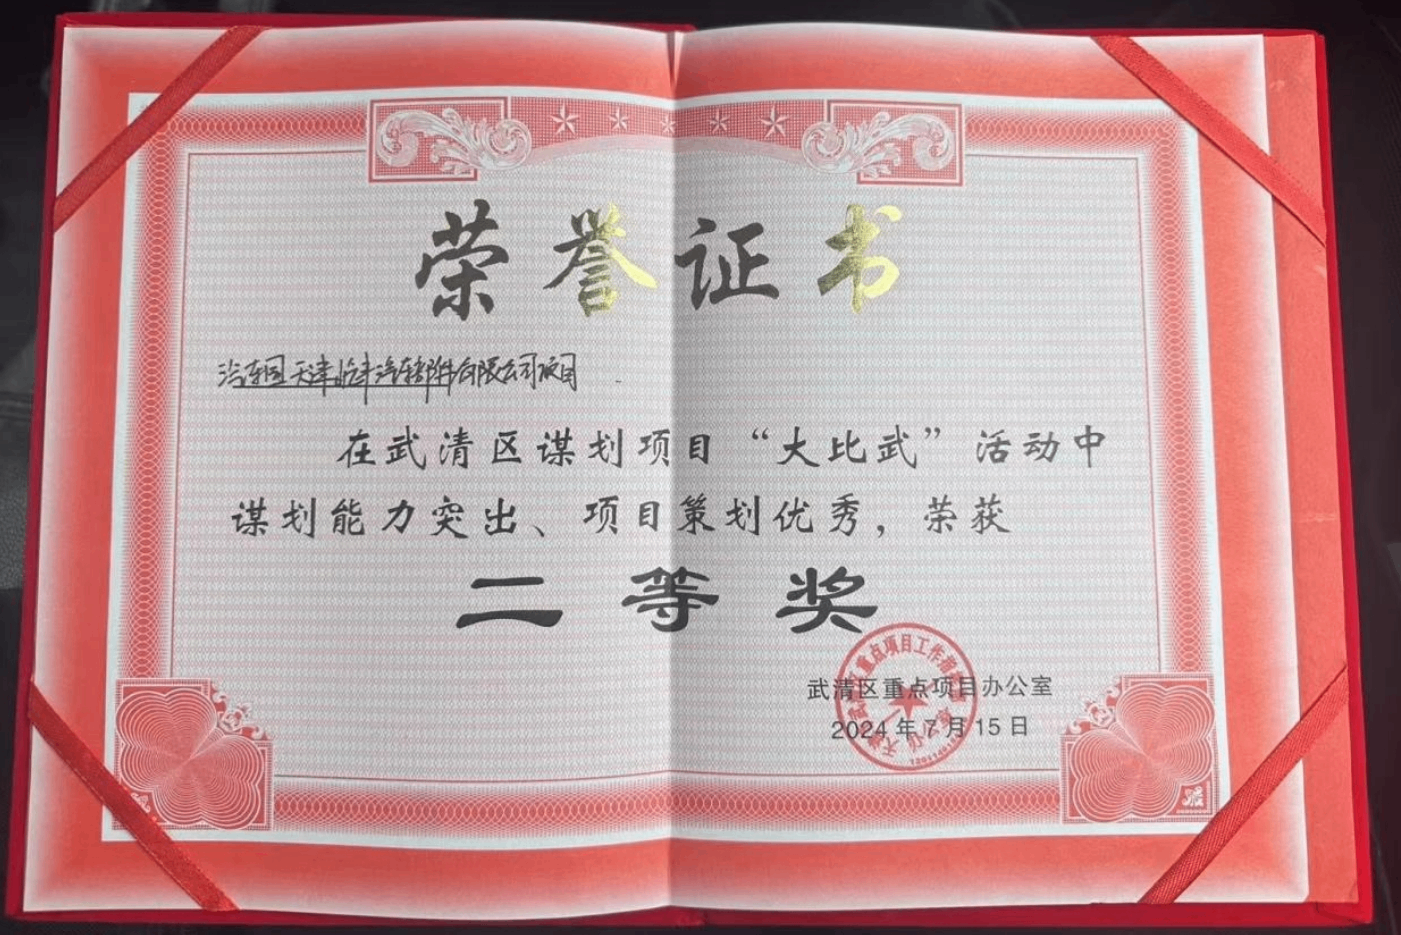 荣誉证书
汽车园天津临丰汽车部件有限公司项目
在武清区谋划项目“大比武”活动中
谋划能力突出、项目策划优秀，荣获
二等奖
武清区重点项目办公室
2024年7月15日